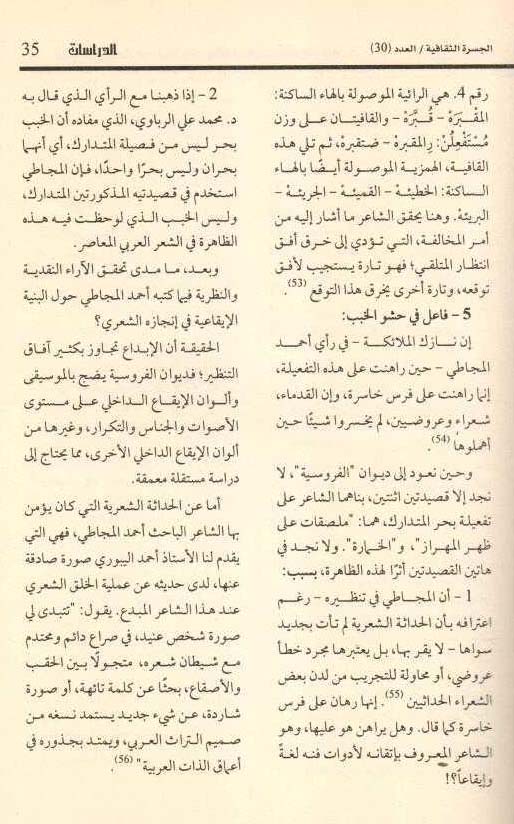 الجسرة الثقافية / العدد (30)
الدراسات
35
رقم 4. هي الرائية الموصولة بالهاء الساكنة:
المقبَرَهْ - قُبَّرَهْ - والقافيتان على وزن
مُسْتَفْعِلُنْ: رِالمقبره - ضتقبره، ثم تلي هذه
القافية، الهمزية الموصولة أيضًا بالهاء
الساكنة: الخطيئهْ - القميئهْ - الجريئهْ -
البريئهْ. وهنا يحقق الشاعر ما أشار إليه من
أمر المخالفة، التي تؤدي إلى خرق أفق
انتظار المتلقي؛ فهو تارة يستجيب لأفق
توقعه، وتارة أخرى يخرق هذا التوقع (53).
5 - فاعل في حشو الخبب:
إن نازك الملائكة - في رأي أحمد
المجاطي - حين راهنت على هذه التفعيلة،
إنما راهنت على فرس خاسرة، وإن القدماء،
شعراء وعروضيين، لم يخسروا شيئًا حين
أهملوها (54).
وحين نعود إلى ديوان "الفروسية"، لا
نجد إلا قصيدتين اثنتين، بناهما الشاعر على
تفعيلة بحر المتدارك، هما: "ملصقات على
ظهر المهراز"، و"الخمارة". ولا نجد في
هاتين القصيدتين أثرًا لهذه الظاهرة، بسبب:
1 - أن المجاطي في تنظيره - رغم
اعترافه بأن الحداثة الشعرية لم تأت بجديد
سواها - لا يقر بها، بل يعتبرها مجرد خطأ
عروضي، أو محاولة للتجريب من لدن بعض
الشعراء الحداثيين (55). إنها رهان على فرس
خاسرة كما قال. وهل يراهن هو عليها، وهو
الشاعر المعروف بإتقانه لأدوات فنه لغةً
وإيقاعاً؟!
2 - إذا ذهبنا مع الرأي الذي قال به
د. محمد علي الرباوي، الذي مفاده أن الخبب
بحر ليس من فصيلة المتدارك، أي أنهما
بحران وليس بحرًا واحدًا، فإن المجاطي
استخدم في قصيدتيه المذكورتين المتدارك،
وليس الخبب الذي لوحظت فيه هذه
الظاهرة في الشعر العربي المعاصر.
وبعد، ما مدى تحقق الآراء النقدية
والنظرية فيما كتبه أحمد المجاطي حول البنية
الإيقاعية في إنجازه الشعري؟
الحقيقة أن الإبداع تجاوز بكثير آفاق
التنظير؛ فديوان الفروسية يضج بالموسيقى
وألوان الإيقاع الداخلي على مستوى
الأصوات والجناس والتكرار، وغيرها من
ألوان الإيقاع الداخلي الأخرى، مما يحتاج إلى
دراسة مستقلة معمقة.
أما عن الحداثة الشعرية التي كان يؤمن
بها الشاعر الباحث أحمد المجاطي، فهي التي
يقدم لنا الأستاذ أحمد اليبوري صورة صادقة
عنها، لدى حديثه عن عملية الخلق الشعري
عند هذا الشاعر المبدع. يقول: "تتبدى لي
صورة شخص عنيد، في صراع دائم ومحتدم
مع شيطان شعره، متجولًا بين الحقب
والأصقاع، بحثًا عن كلمة تائهة، أو صورة
شاردة، عن شيء جديد يستمد نسغه من
صميم التراث العربي، ويمتد بجذوره في
أعماق الذات العربية" (56).